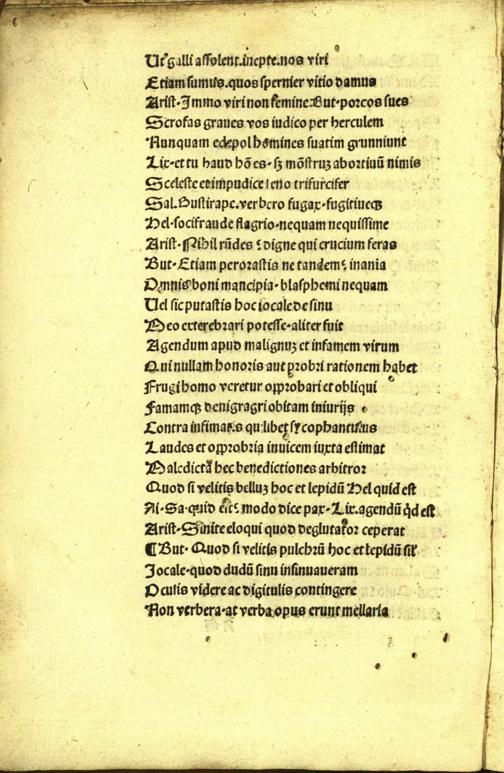 Ut galli assolent.inepte.nos viri
Etiam sumus.quos spernier vitio damus
Arist.Immo viri non femine:But.porcos sues
Scrofas graues vos iudico per herculem
Nunquam edepol homines suatim grunniunt
Lix.et tu haud hõ es.sꝫ mõstruꝫ abortiuũ nimis
Sceleste et impudice leno trifurcifer
Sal.Bustirape.verbero fugax.fugitiueqꝫ
Hel.socifraude flagrio.nequam nequissime
Arist.Nihil rñdes:digne qui crucium feras
But.Etiam perorastis ne tandem:inania
Omnis boni mancipia.blasphemi nequam
Uel sic putastis hoc iocale de sinu
Meo exterebrari potesse.aliter fuit
Agendum apud malignuꝫ et infamem virum
Qui nullam honoris aut probri rationem habet
Frugi homo veretur opprobari et obliqui
Famamqꝫ denigragri obitam iniurijs
Contra infimates qui libet sycophantulus
Laudes et opprobria inuicem iuxta estimat
Maledicta hec benedictiones arbitror
Quod si velitis belluꝫ hoc et lepidũ Hel quid est
Ai.Sa.quid est:modo dice pax.Lix.agendũ qd est
Arist.Sinite eloqui quod deglutator ceperat
¶ But.Quod si velitis pulchrũ hoc et lepidũ
Iocale.quod dudũ sinu insinuaueram
Oculis videre ac digitulis contingere
Non verbera.at verba opus erunt mellaria